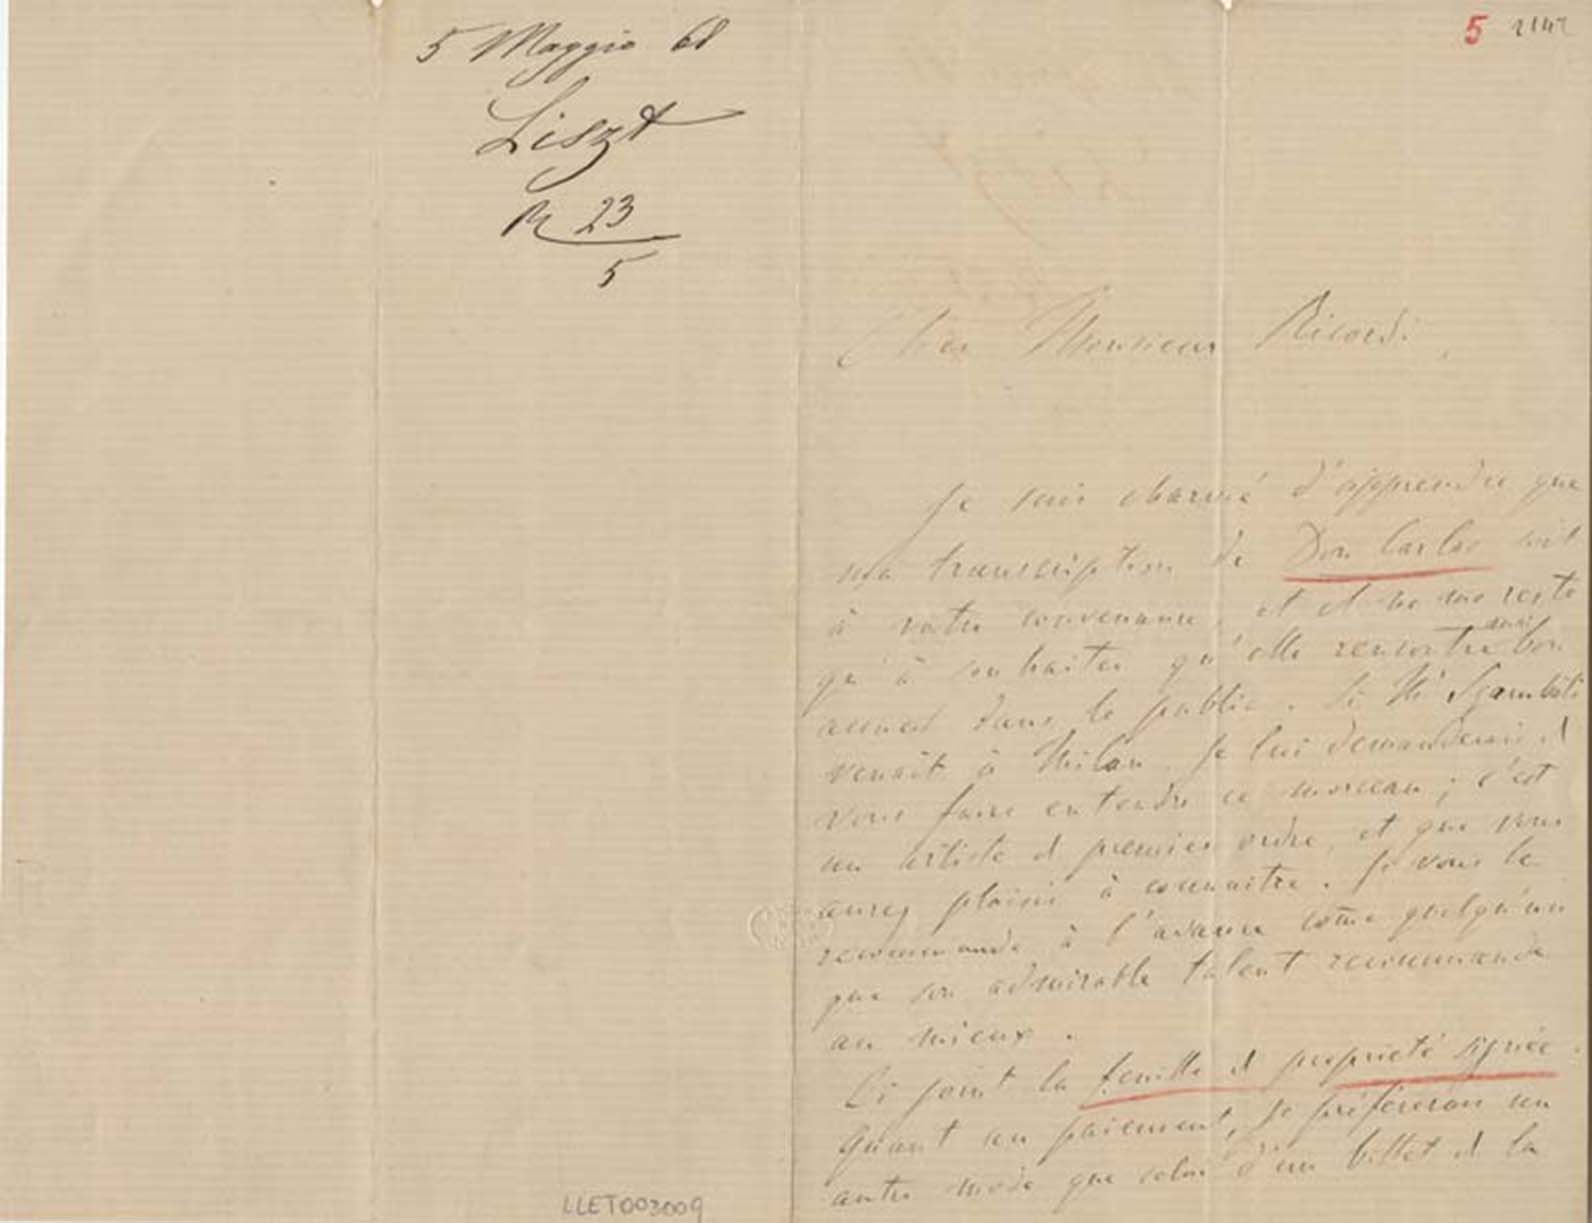 5 Maggio 68
Liszt
R 23
5
5 2142
Cher Monsieur Ricordi,
Je suis charmé d'apprendre que
ma transcription de Don Carlos soit
à votre convenance, et il ne me reste
qu'à souhaiter qu'elle rencontre aussi bon
accueil dans le public. Si Mr Sgambati
venait à Milan je lui demanderai d
vous faire entendre ce morceau; c'est
un artiste d premier ordre, et que vous
aurez plaisir à connaitre. Je vous le
recommande à l'avance come quelqu'un
que son admirable talent recommande
au mieux.
Ci joint la feuille d propriété signée.
Quant au paiement, je préférerais un
autre mode que celui d'un billet d la
LLET003009